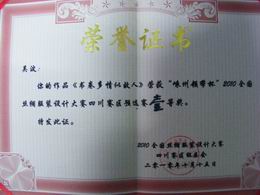 荣誉证书
吴波：
你的作品《书卷多情似故人》荣获“嵊州领带杯”2010全国
丝绸服装设计大赛四川赛区预选赛壹等奖。
特发此证。
2010全国丝绸服装设计大赛
四川赛区组委会
二〇一〇年十月十五日